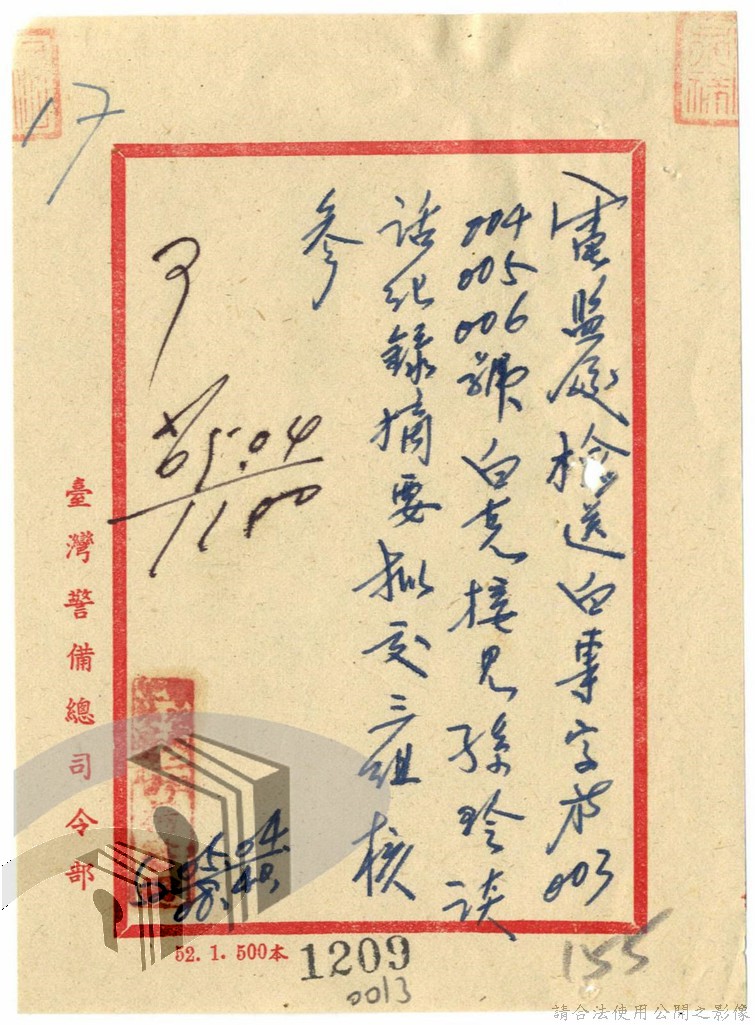 17
電監處檢送白專字第003
004
005
006號白克接見孫玲談
話紀錄摘要擬交三組核
參
可
05.04
1100
05.04.
08.40.
臺灣警備總司令部
52. 1. 500本
1209
0013
155
請合法使用公開之影像